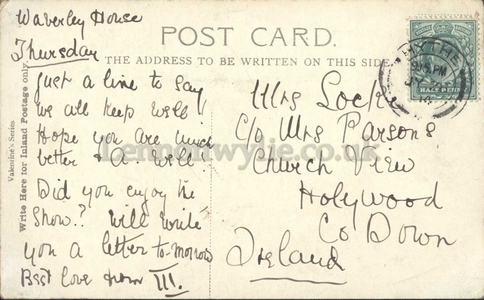 Waverley House
Thursday
Just a line to say
we all keep well
Hope you are much
better & A. well.
Did you enjoy the
Show? Will write
you a letter to-morrow
Best love from
POST CARD.
THE ADDRESS TO BE WRITTEN ON THIS SIDE.
Valentine's Series
Write Here for Inland Postage only.
Mrs Locke
C/o Mrs Parsons
Church View
Holywood
Co Down
Ireland
HYTHE
HALF PENNY
Lennonwylie.co.uk